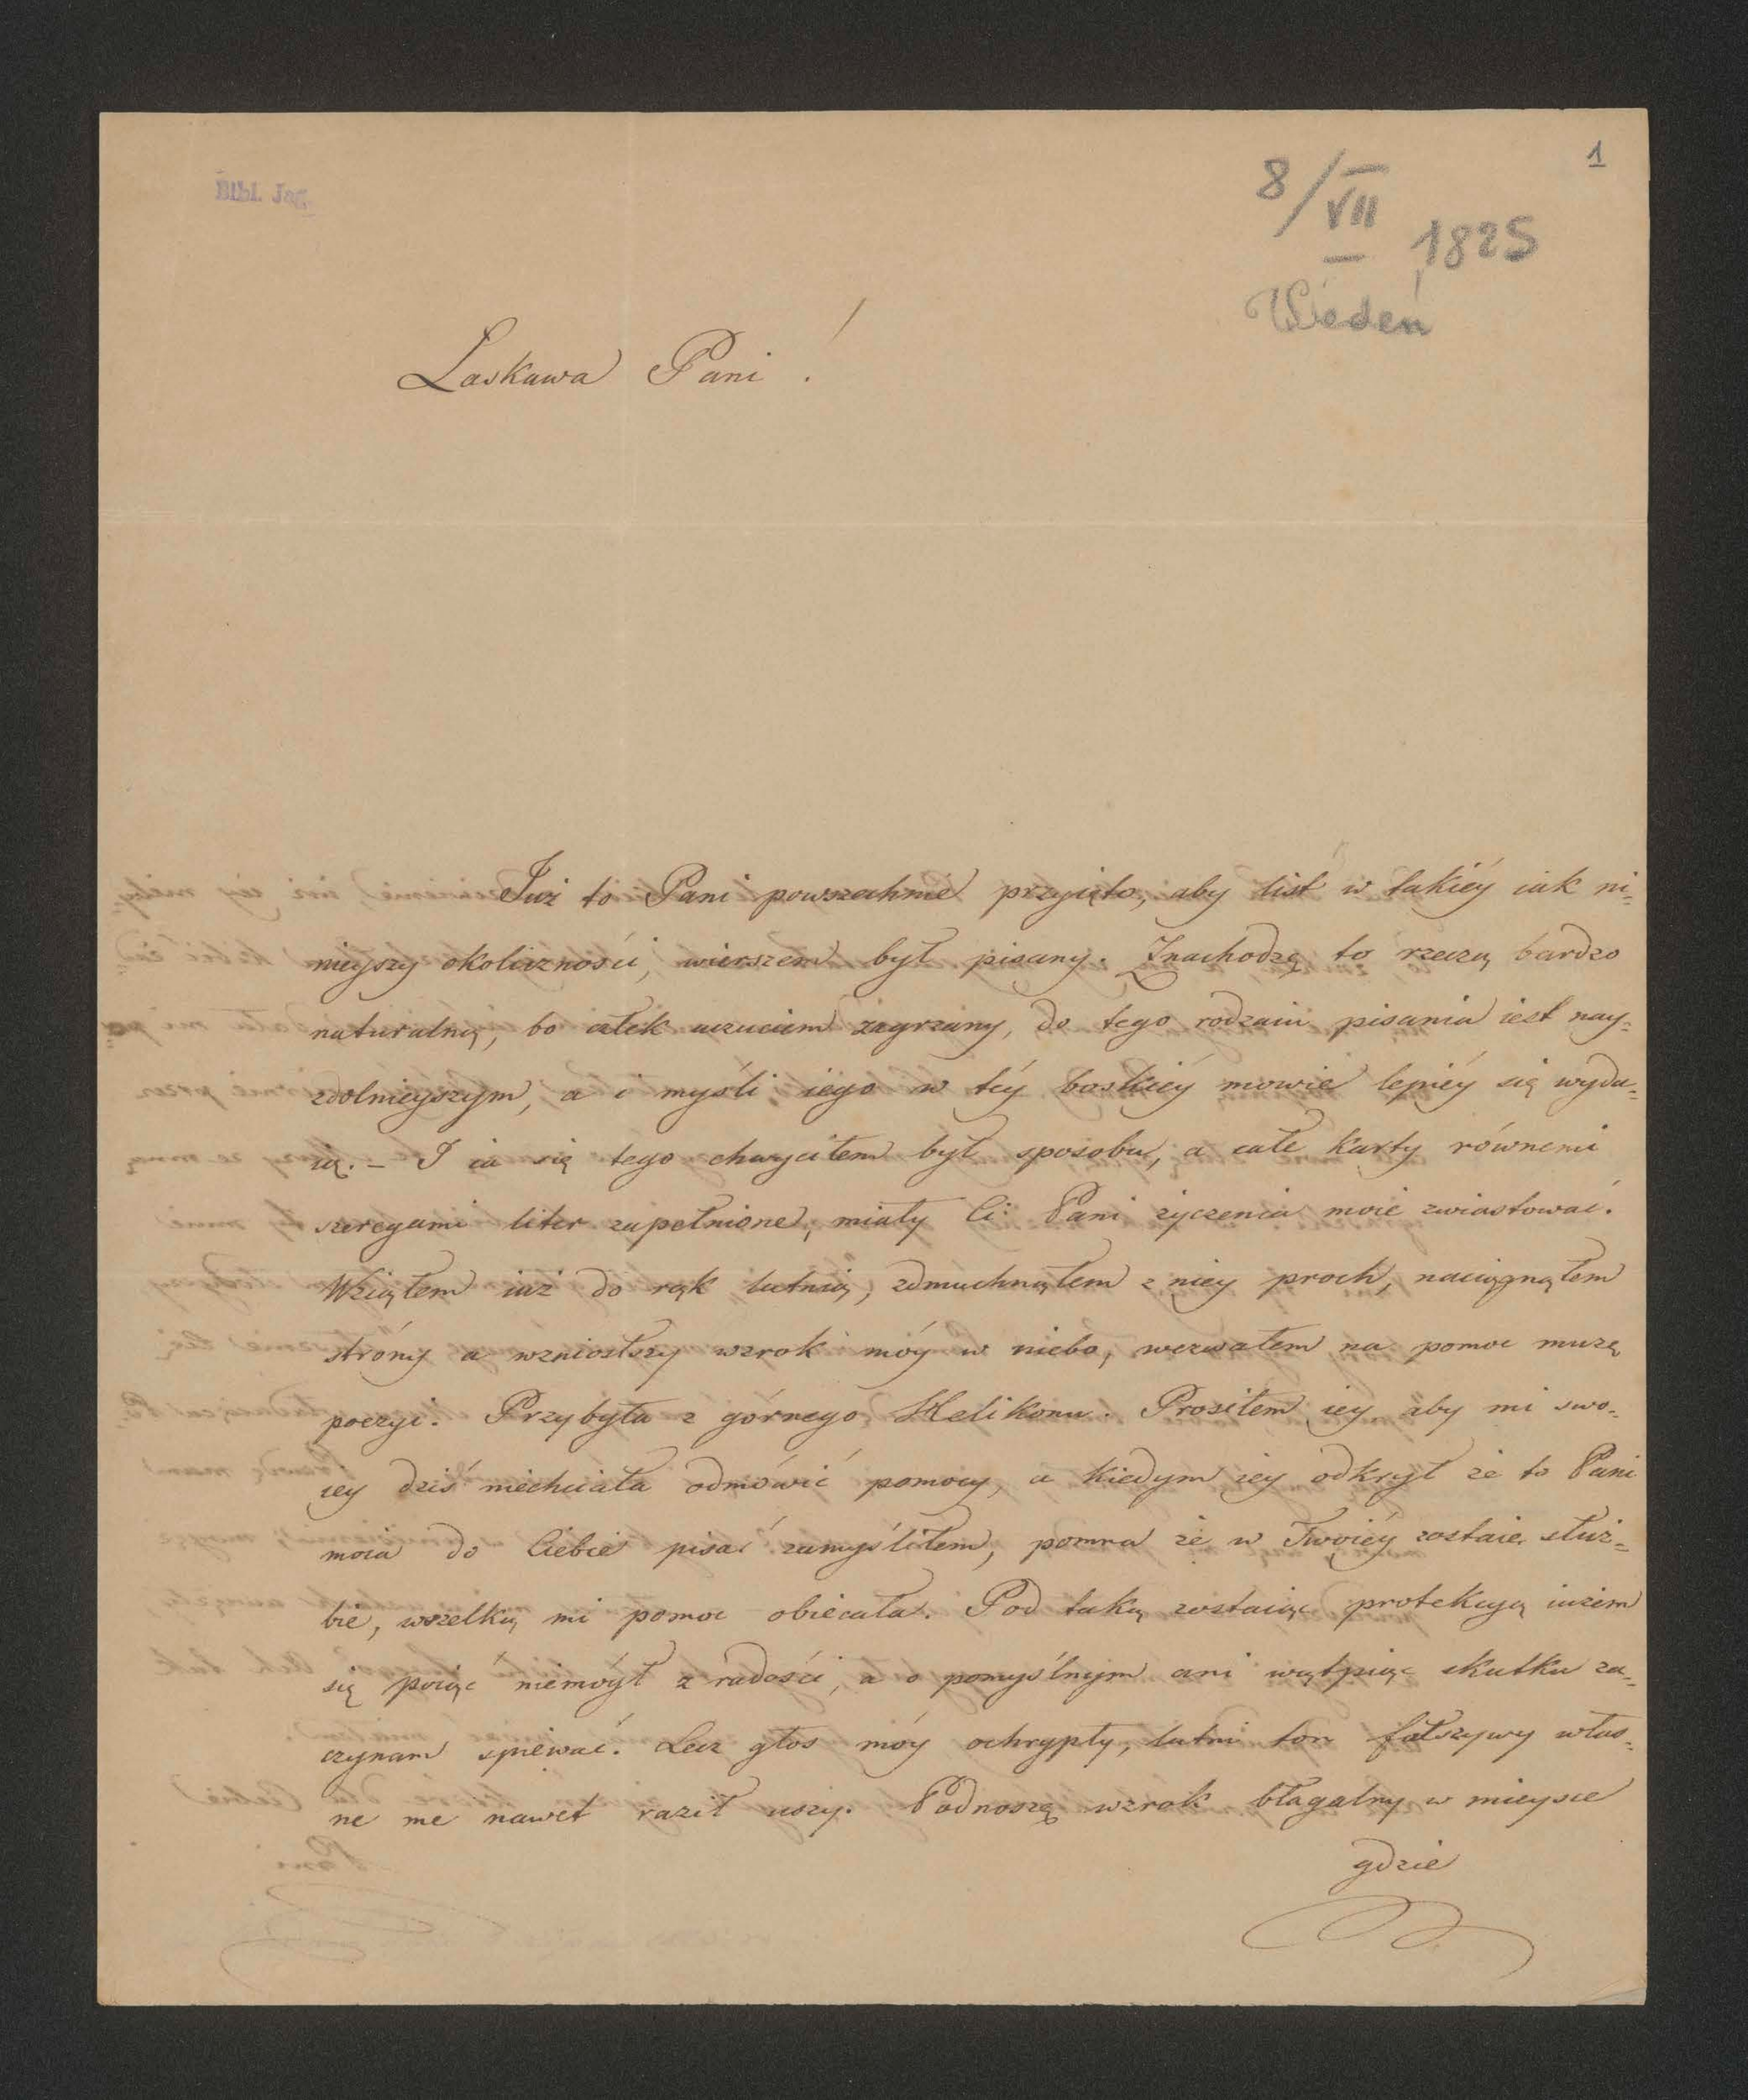 1
Bibl. Jag.
8/VII 1825
Wiedeń
Łaskawa Pani!
Już to Pani powszechnie przyięto, aby list w takiéy iak ni-
nieyszy okoliczności, wierszem był pisany. Znachodzę to rzeczą bardzo
naturalną, bo człek uczuciem zagrzany, do tego rodzaiu pisania iest nay-
zdolnieyszym, a i myśli iego w téy boskiéy mowie lepiéy się wyda-
ią. – I ia się tego chwyciłem był sposobu, a całe karty równemi
szeregami liter zapełnione, miały Ci Pani życzenia moie zwiastować.
Wziąłem iuż do rąk lutnią, zdmuchnąłem z niey proch, naciągnąłem
stróny a wzniosłszy wzrok móy w niebo, wezwałem na pomoc muzę
poezyi. Przybyła z górnego Helikonu. Prosiłem iey aby mi swo-
iey dziś niechciała odmówić pomocy, a kiedym iey odkrył że to Pani
moia do Ciebie pisać zamyśliłem, pomna że w Twoiéy zostaie służ-
bie, wszelką mi pomoc obiecała. Pod taką zostaiąc protekcyą iużem
się poiąć niemógł z radości, a o pomyślnym ani wątpiąc skutku za-
czynam śpiewać. Lecz głos móy ochrypły, lutni ton fałszywy włas-
ne me nawet raził uszy. Podnoszę wzrok błagalny w mieysce
gdzie